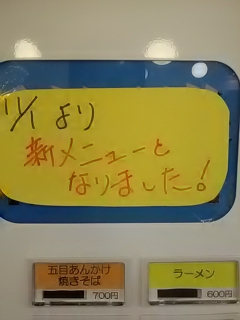 11/1 より
新メニューと
なりました!
五目あんかけ
焼きそば
700円
ラーメン
600円